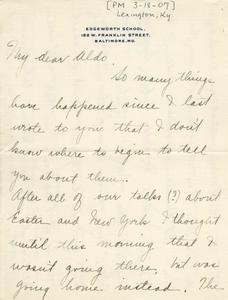 [PM 3-18-07]
Lexington, Ky.
EDGEWORTH SCHOOL,
122 W. FRANKLIN STREET,
BALTIMORE, MD.
My dear Aldo:
So many things
have happened since I last
wrote to you that I don't
know where to begin to tell
you about them.
After all of our talks (?) about
Easter and New York I thought
until this morning that I
wasn't going there, but was
going home instead. The